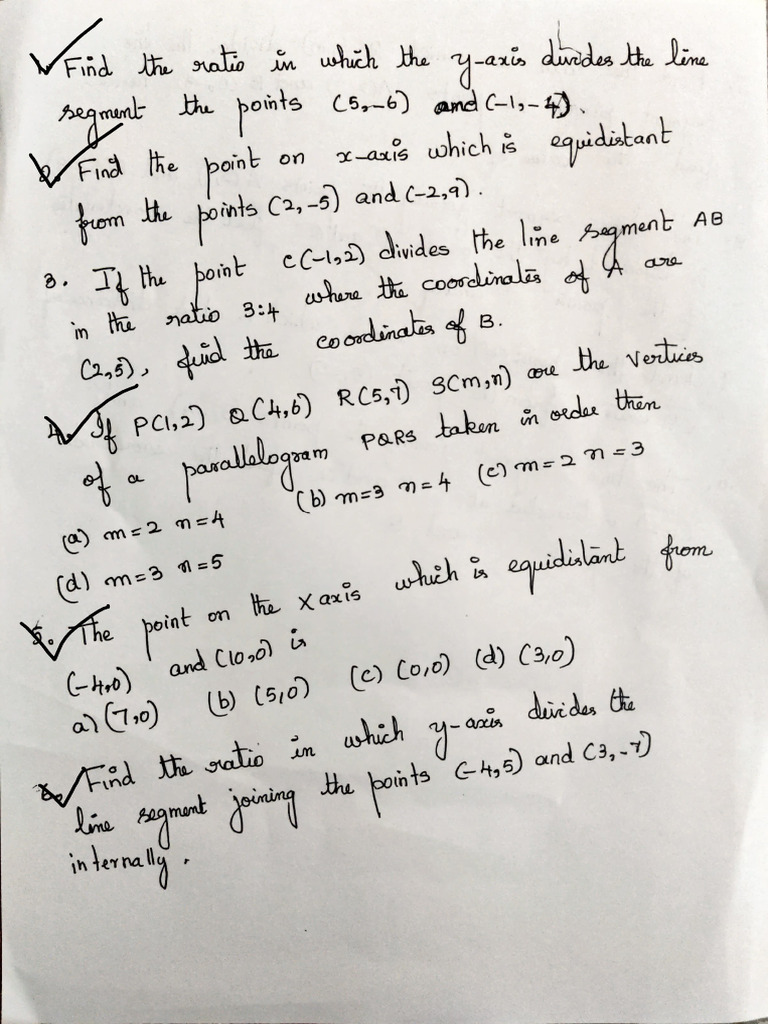 1. Find the ratio in which the y-axis divides the line
segment the points (5,-6) and (-1,-4).
2. Find the point on x-axis which is equidistant
from the points (2,-5) and (-2,9).
3. If the point C(-1,2) divides the line segment AB
in the ratio 3:4 where the coordinates of A are
(2,5), find the coordinates of B.
4. If P(1,2) Q(4,6) R(5,7) S(m,n) are the vertices
of a parallelogram PQRS taken in order then
(a) m=2 n=4 (b) m=3 n=4 (c) m=2 n=3
(d) m=3 n=5
5. The point on the X axis which is equidistant from
(-4,0) and (10,0) is
a) (7,0) (b) (5,0) (c) (0,0) (d) (3,0)
6. Find the ratio in which y-axis deivides the
line segment joining the points (-4,5) and (3,-7)
internally.